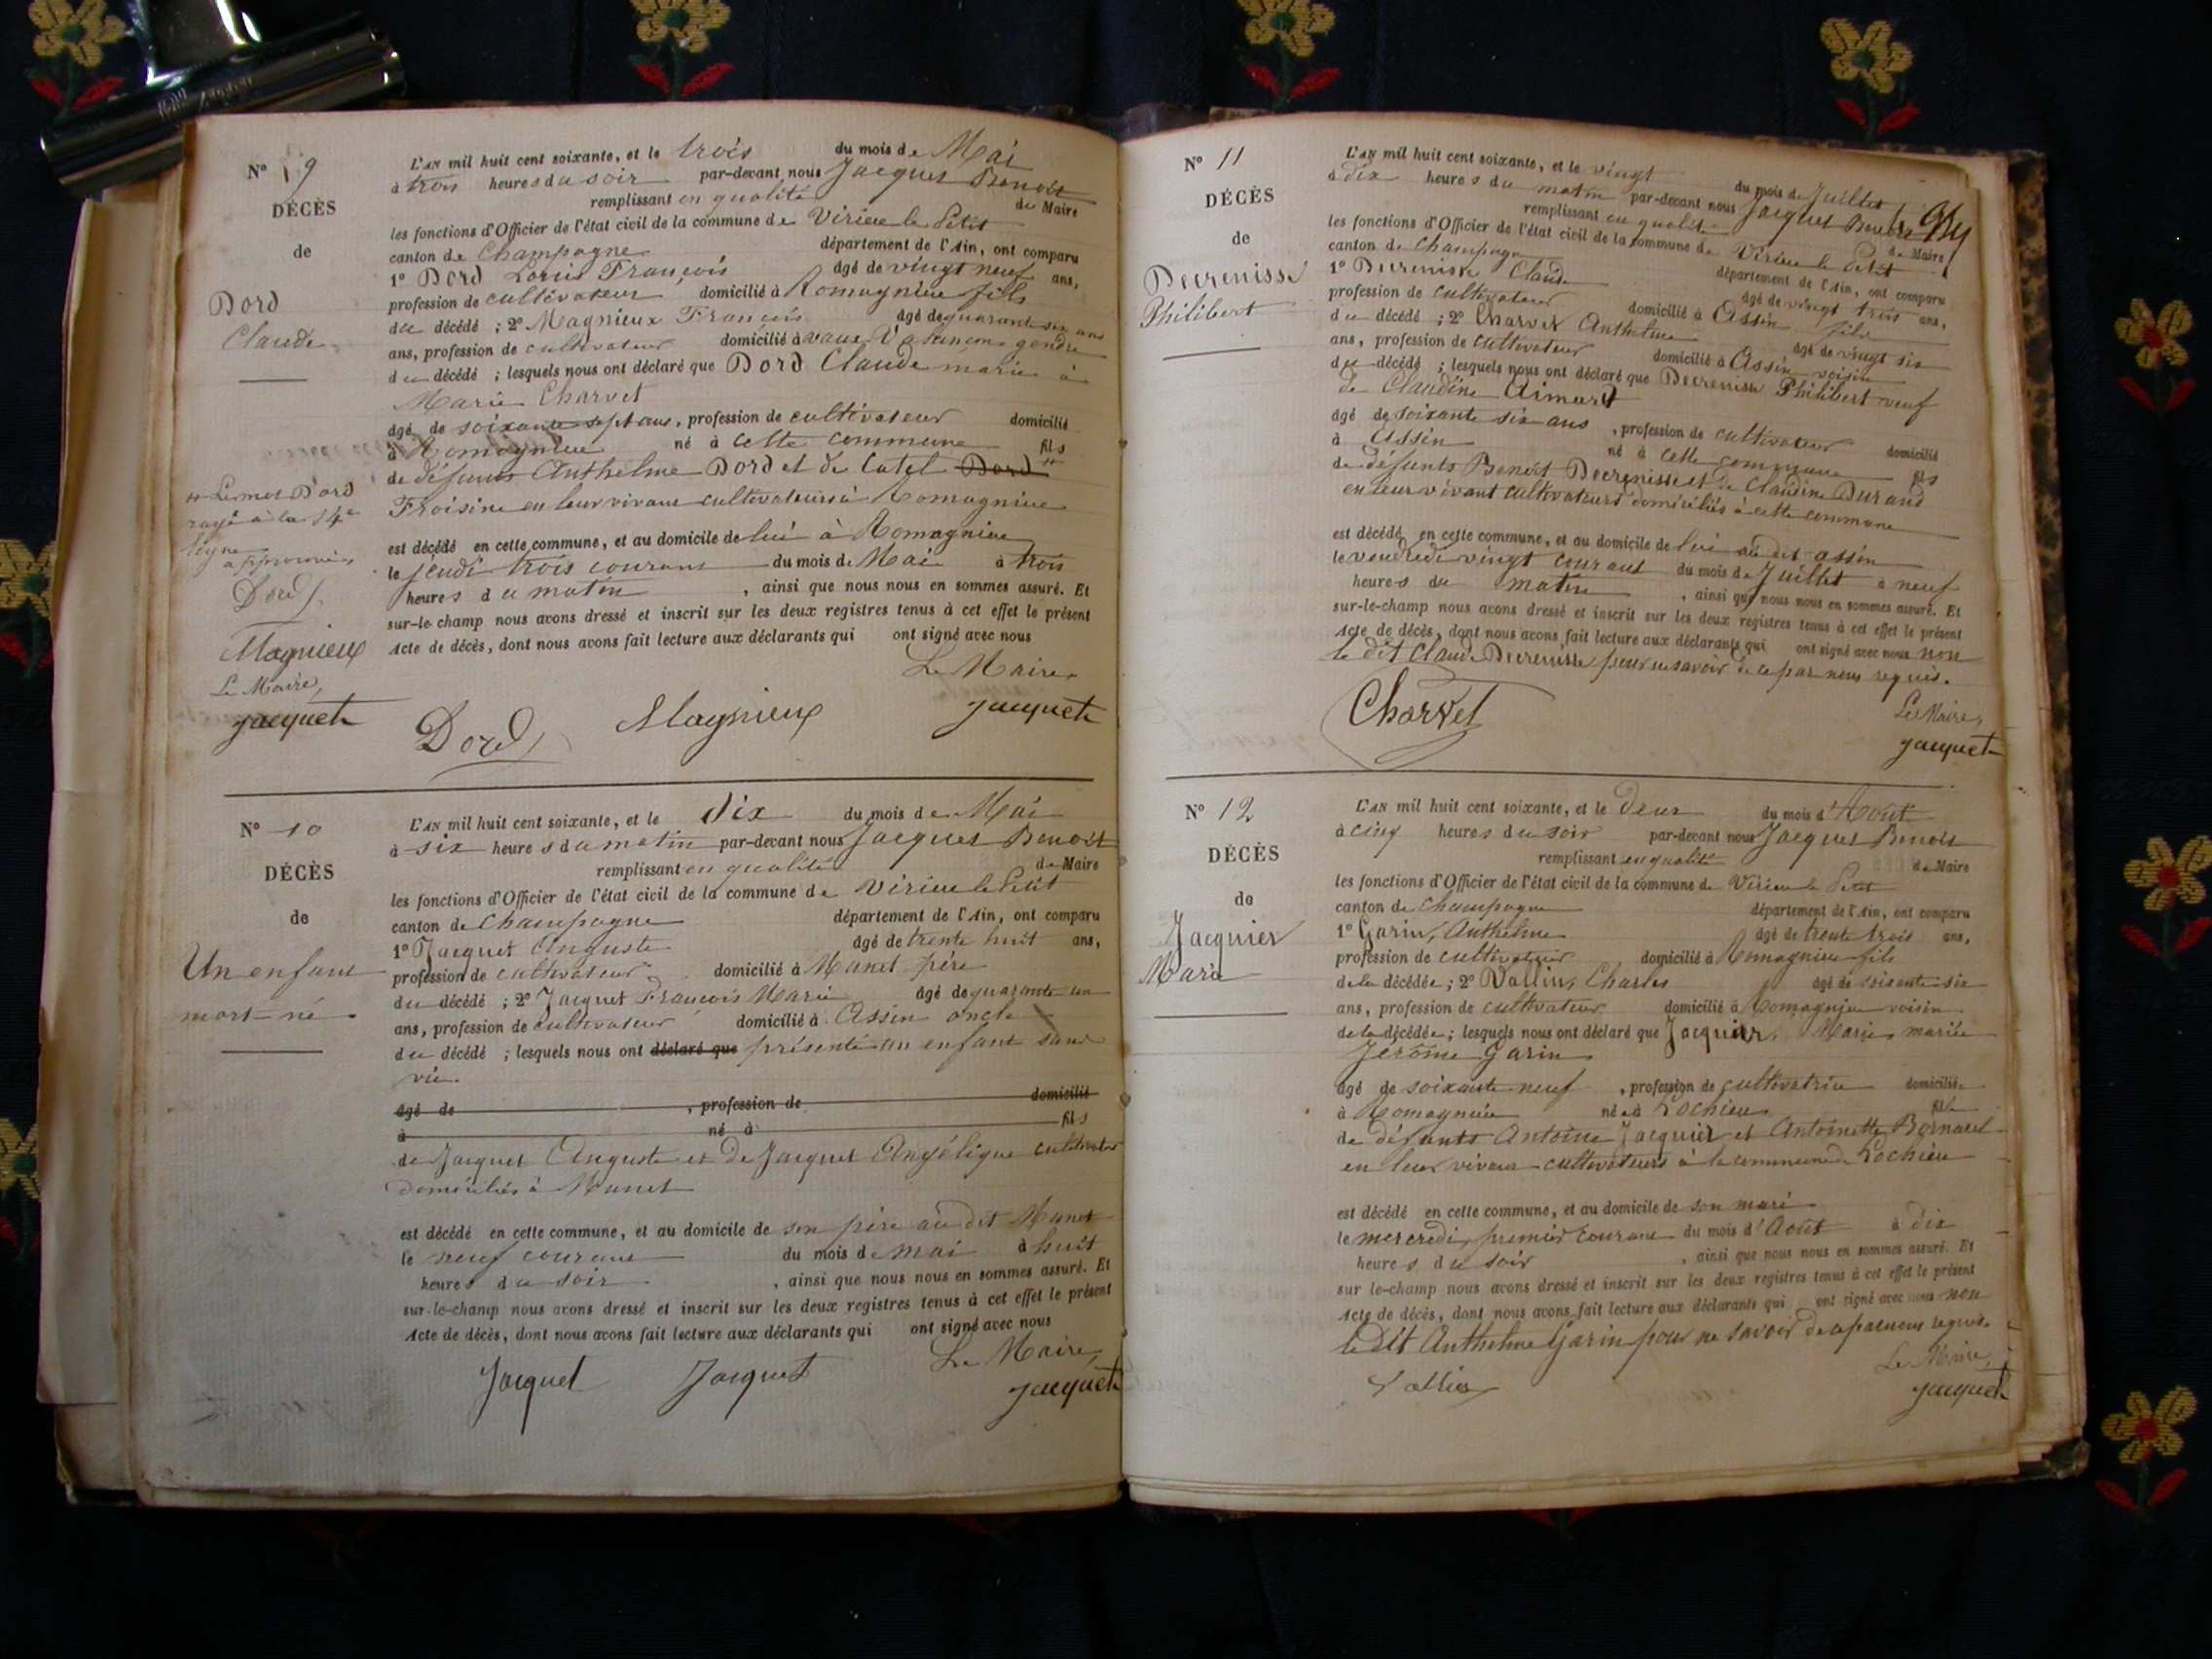 N° 9
DÉCÈS
de
Dord
Claude
L'AN mil huit cent soixante, et le trois du mois de Mai
à trois heures du soir par-devant nous Jacquet Benoit
remplissant en qualité de Maire
les fonctions d'Officier de l'état civil de la commune de Virieu le Petit
canton de Champagne département de l'Ain, ont comparu
1° Dord Louis François âgé de vingt neuf ans,
profession de cultivateur domicilié à Romagnieu fils
du décédé ; 2° Magnieux François âgé de quarante six ans
ans, profession de cultivateur domicilié à vaux Valançon gendre
du décédé ; lesquels nous ont déclaré que Dord Claude marié à
Marie Charvet
âgé de soixante sept ans, profession de cultivateur domicilié
à Romagnieu né à cette commune fils
de défunts Anthelme Dord et de Catel Dord
Froisine en leur vivant cultivateurs à Romagnieu
est décédé en cette commune, et au domicile de lui à Romagnieu
le jeudi trois courant du mois de Mai à trois
heures du matin , ainsi que nous nous en sommes assuré. Et
sur-le-champ nous avons dressé et inscrit sur les deux registres tenus à cet effet le présent
Acte de décès, dont nous avons fait lecture aux déclarants qui ont signé avec nous
Le Maire,
Dord Magnieux Jacquet
Le mot Dord
rayé à la 14e
ligne
approuvé
Dord
Magnieux
Le Maire,
Jacquet
N° 10
DÉCÈS
de
Un enfant
mort-né
L'AN mil huit cent soixante, et le dix du mois de Mai
à six heures du matin par-devant nous Jacquet Benoit
remplissant en qualité de Maire
les fonctions d'Officier de l'état civil de la commune de Virieu le Petit
canton de Champagne département de l'Ain, ont comparu
1° Jacquet Auguste âgé de trente huit ans,
profession de cultivateur domicilié à Munet père
du décédé ; 2° Jacquet François Marie âgé de quarante un
ans, profession de cultivateur domicilié à Assin oncle
du décédé ; lesquels nous ont déclaré que présenté un enfant sans
vie.
âgé de , profession de domicilié
à né à fils
de Jacquet Auguste et de Jacquet Angélique cultivateurs
domiciliés à Munet
est décédé en cette commune, et au domicile de son père au dit Munet
le neuf courant du mois de mai à huit
heures du soir , ainsi que nous nous en sommes assuré. Et
sur-le-champ nous avons dressé et inscrit sur les deux registres tenus à cet effet le présent
Acte de décès, dont nous avons fait lecture aux déclarants qui ont signé avec nous
Le Maire,
Jacquet Jacquet Jacquet
N° 11
DÉCÈS
de
Decrenisse
Philibert
L'AN mil huit cent soixante, et le vingt du mois de Juillet
à dix heures du matin par-devant nous Jacquet Benoit
remplissant en qualité de Maire
les fonctions d'Officier de l'état civil de la commune de Virieu le Petit
canton de Champagne département de l'Ain, ont comparu
1° Decrenisse Claude âgé de vingt trois ans,
profession de cultivateur domicilié à Assin fils
du décédé ; 2° Charvet Anthelme âgé de vingt six
ans, profession de cultivateur domicilié à Assin voisin
du décédé ; lesquels nous ont déclaré que Decrenisse Philibert veuf
de Claudine Aimard
âgé de soixante six ans , profession de cultivateur domicilié
à Assin né à cette commune fils
de défunts Benoit Decrenisse et de Claudine Durand
en leur vivant cultivateurs domiciliés à cette commune
est décédé en cette commune, et au domicile de lui au dit assin
le vendredi vingt courant du mois de Juillet à neuf
heures du matin , ainsi que nous nous en sommes assuré. Et
sur-le-champ nous avons dressé et inscrit sur les deux registres tenus à cet effet le présent
Acte de décès, dont nous avons fait lecture aux déclarants qui ont signé avec nous non
le dit Claude Decrenisse pour ne savoir de ce par nous requis.
Le Maire,
Charvet Jacquet
N° 12
DÉCÈS
de
Jacquier
Marie
L'AN mil huit cent soixante, et le deux du mois d'Août
à cinq heures du soir par-devant nous Jacquet Benoit
remplissant en qualité de Maire
les fonctions d'Officier de l'état civil de la commune de Virieu le Petit
canton de Champagne département de l'Ain, ont comparu
1° Garin, Anthelme âgé de trente trois ans,
profession de cultivateur domicilié à Romagnieu fils
de la décédée ; 2° Vallin, Charles âgé de soixante six
ans, profession de cultivateur domicilié à Romagnieu voisin
de la décédée ; lesquels nous ont déclaré que Jacquier, Marie mariée
Jerôme Garin
âgé de soixante neuf , profession de cultivatrice domiciliée
à Romagnieu née à Lochieu fille
de défunts Antoine Jacquier et Antoinette Bornard
en leur vivant cultivateurs à la commune de Lochieu
est décédé en cette commune, et au domicile de son mari
le mercredi, premier courant du mois d'Août à dix
heures du soir , ainsi que nous nous en sommes assuré. Et
sur le-champ nous avons dressé et inscrit sur les deux registres tenus à cet effet le présent
Acte de décès, dont nous avons fait lecture aux déclarants qui ont signé avec nous non
le dit Anthelme Garin pour ne savoir de ce par nous requis.
Le Maire,
Vallin Jacquet